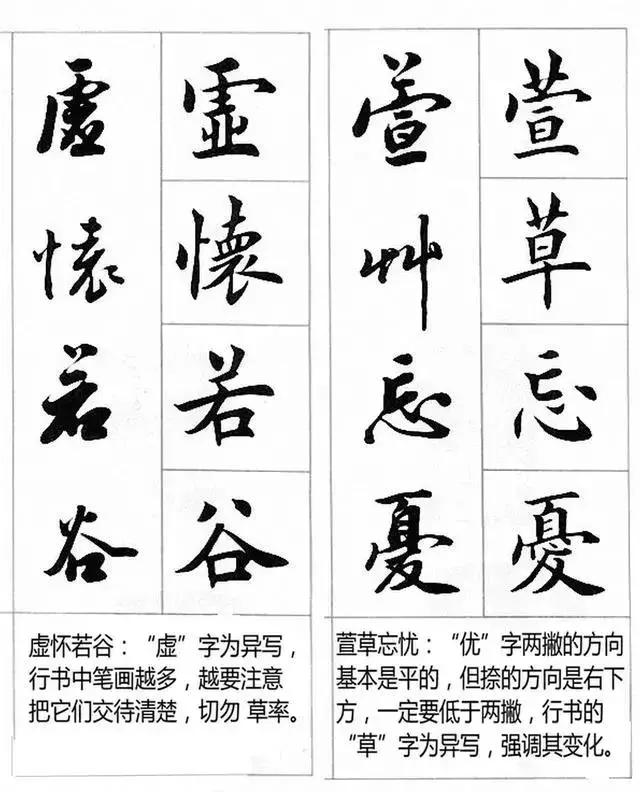 虚懷若谷
虚懷若谷
虚怀若谷：“虚”字为异写，
行书中笔画越多，越要注意
把它们交待清楚，切勿 草率。
萱艸忘憂
萱草忘憂
萱草忘忧：“优”字两撇的方向
基本是平的，但捺的方向是右下
方，一定要低于两撇，行书的
“草”字为异写，强调其变化。